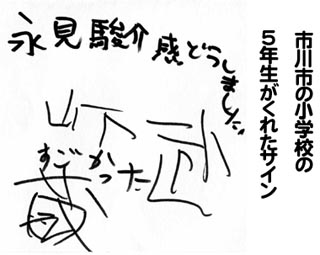 市川市の小学校の
5年生がくれたサイン
永見駿介 感どうしました
すごかった
山下
蔵